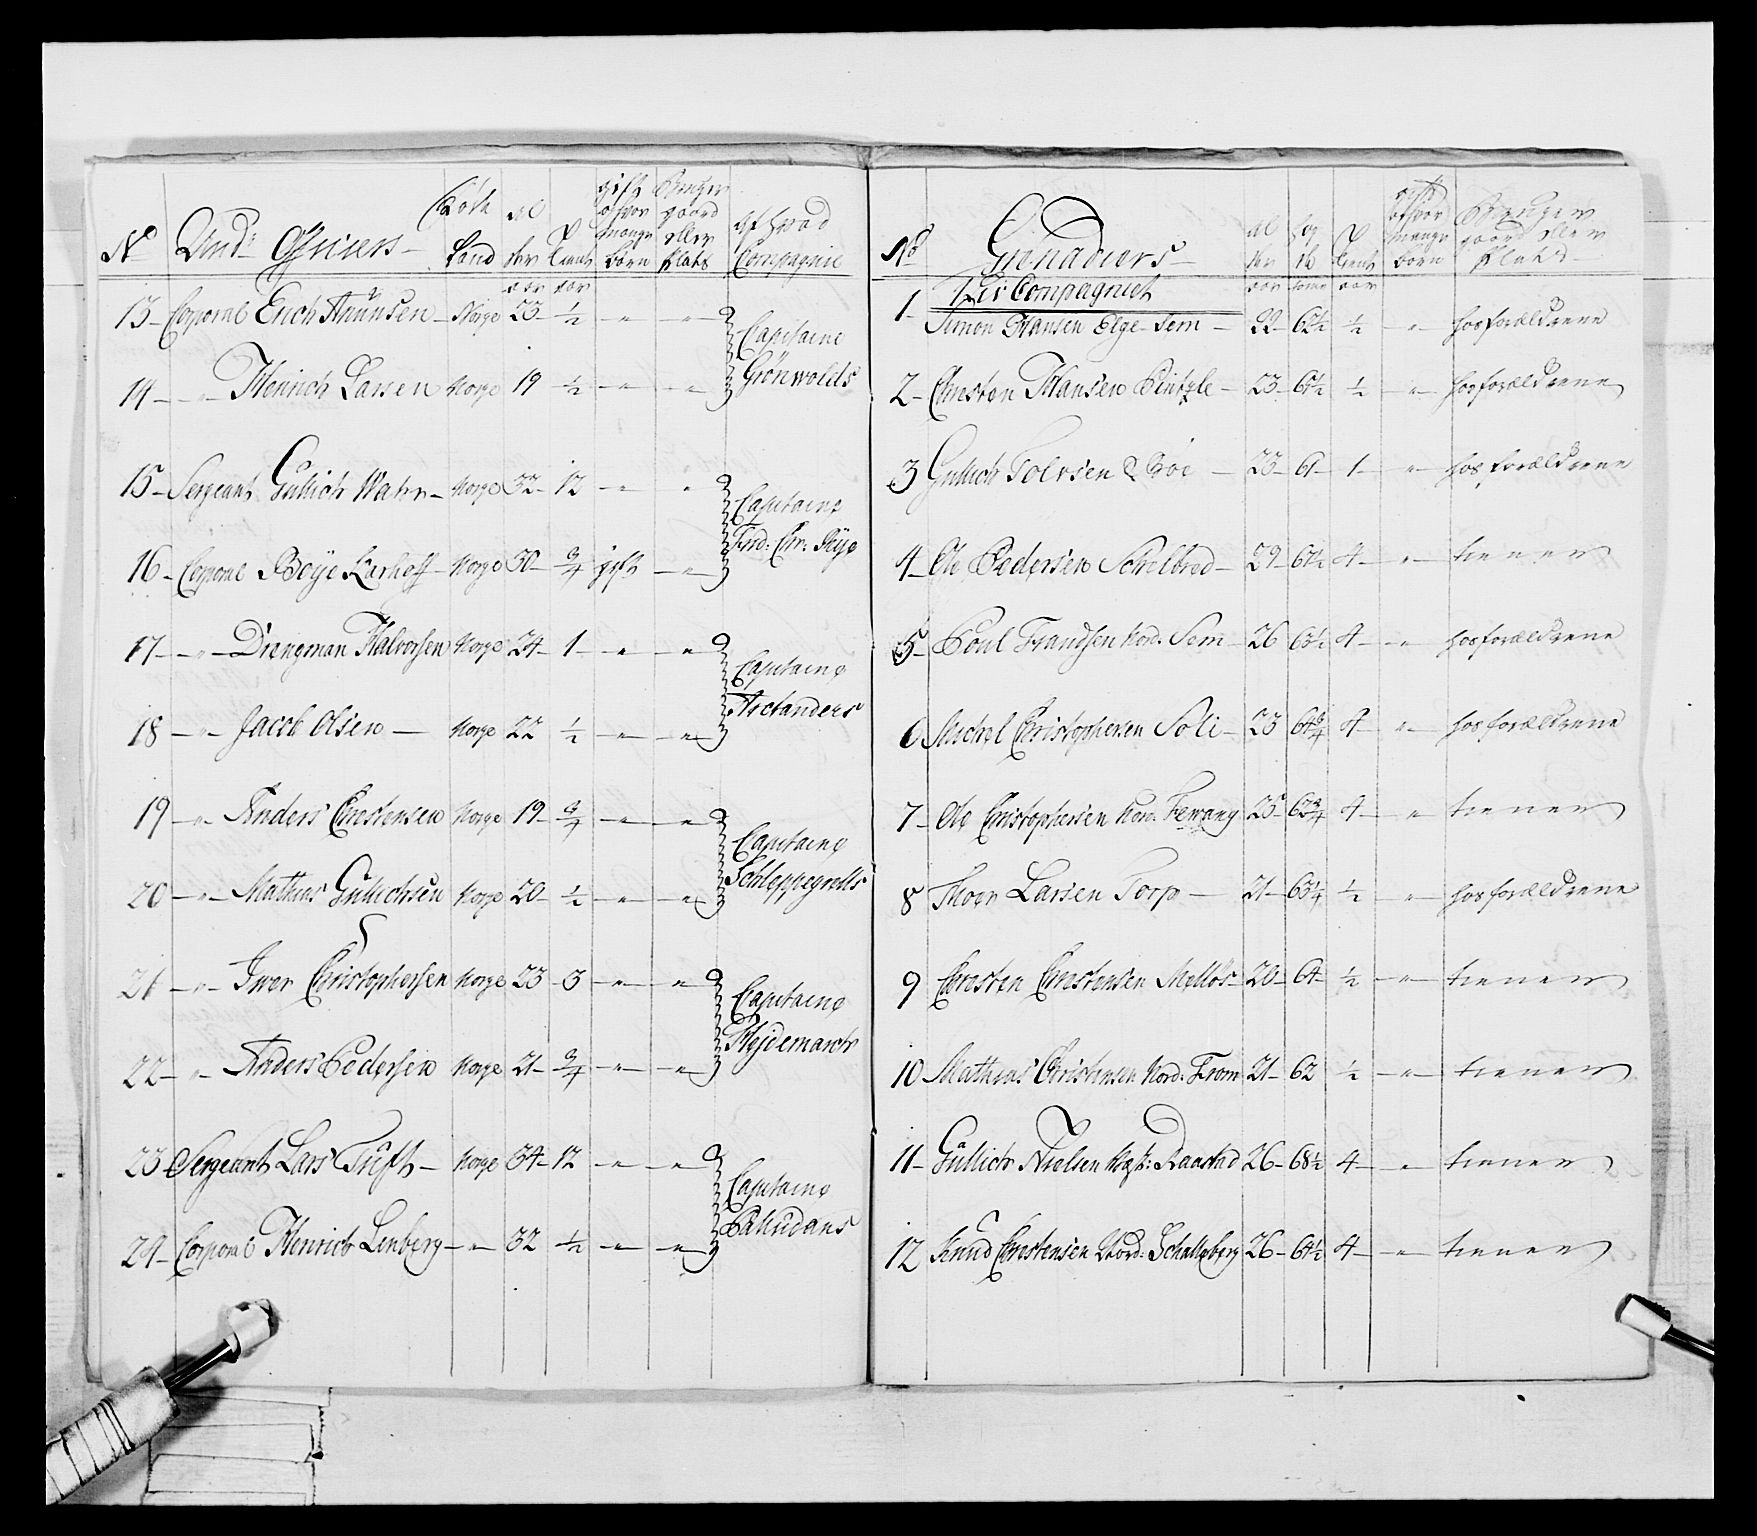 No Und: Officiers Føde Land Al der aar Tient aar gift og hvor mange børn Bruger gaard eller plads Af hvad Compagnie
13 Corporal Erich Knudsen Norge 23 ½ " "
Capitaine
Grönwolds
14 " Henrich Larsen Norge 19 ½ " "
15 Sergeant Gullich Wahr Norge 32 12 " "
Capitaine
Frid: Chr: Rije
16 Corporal Boije Karhoff Norge 30 ¾ gift "
17 " Drengman Halvorsen Norge 24 1 " "
Capitaine
Arctanders
18 " Jacob Olsen Norge 22 ½ " "
19 " Anders Christensen Norge 19 ¾ " "
Capitaine
Schleppegrells
20 " Mathias Gullichsen Norge 20 ½ " "
21 " Iwer Christophersen Norge 23 3 " "
Capitaine
Hejdemarch
22 " Anders Pedersen Norge 21 ¾ " "
23 Sergeant Lars Tuft Norge 34 12 " "
Capitaine
Paludans
24 Corporal Henrich Lenberg " 32 ½ " "
No Grenadiers al der aar Tient aar gift og hvor mange børn Bruger gaard eller plads
Liv Compagniet
1 Simon Hansen Elge Sem 22 62½ ½ " hos forældrene
2 Christen Hansen 23 61½ ½ " hos forældrene
3 Gullich Tolvsen Böe 23 61 1 " hos forældrene
4 Ole Pedersen Schelbred 29 61½ 4 " tiener
5 Poul Frandsen Nord: Sem 26 63½ 4 " hos forældrene
6 Michel Christophersen Soli 23 64¾ 4 " hos forældrene
7 Ole Christophersen Nord: Fewang 25 62¾ 4 " tiener
8 Thoer Larsen Torp 21 63¼ ½ " hos forældrene
9 Christen Christensen Melløs 20 64 ½ " tiener
10 Mathias Christensen Nord: From 21 62 ½ " tiener
11 Gullich Nielsen West: Raastad 26 68½ 4 " tiener
12 Knud Christensen Nord: Schalleberg 26 64½ 4 " tiener